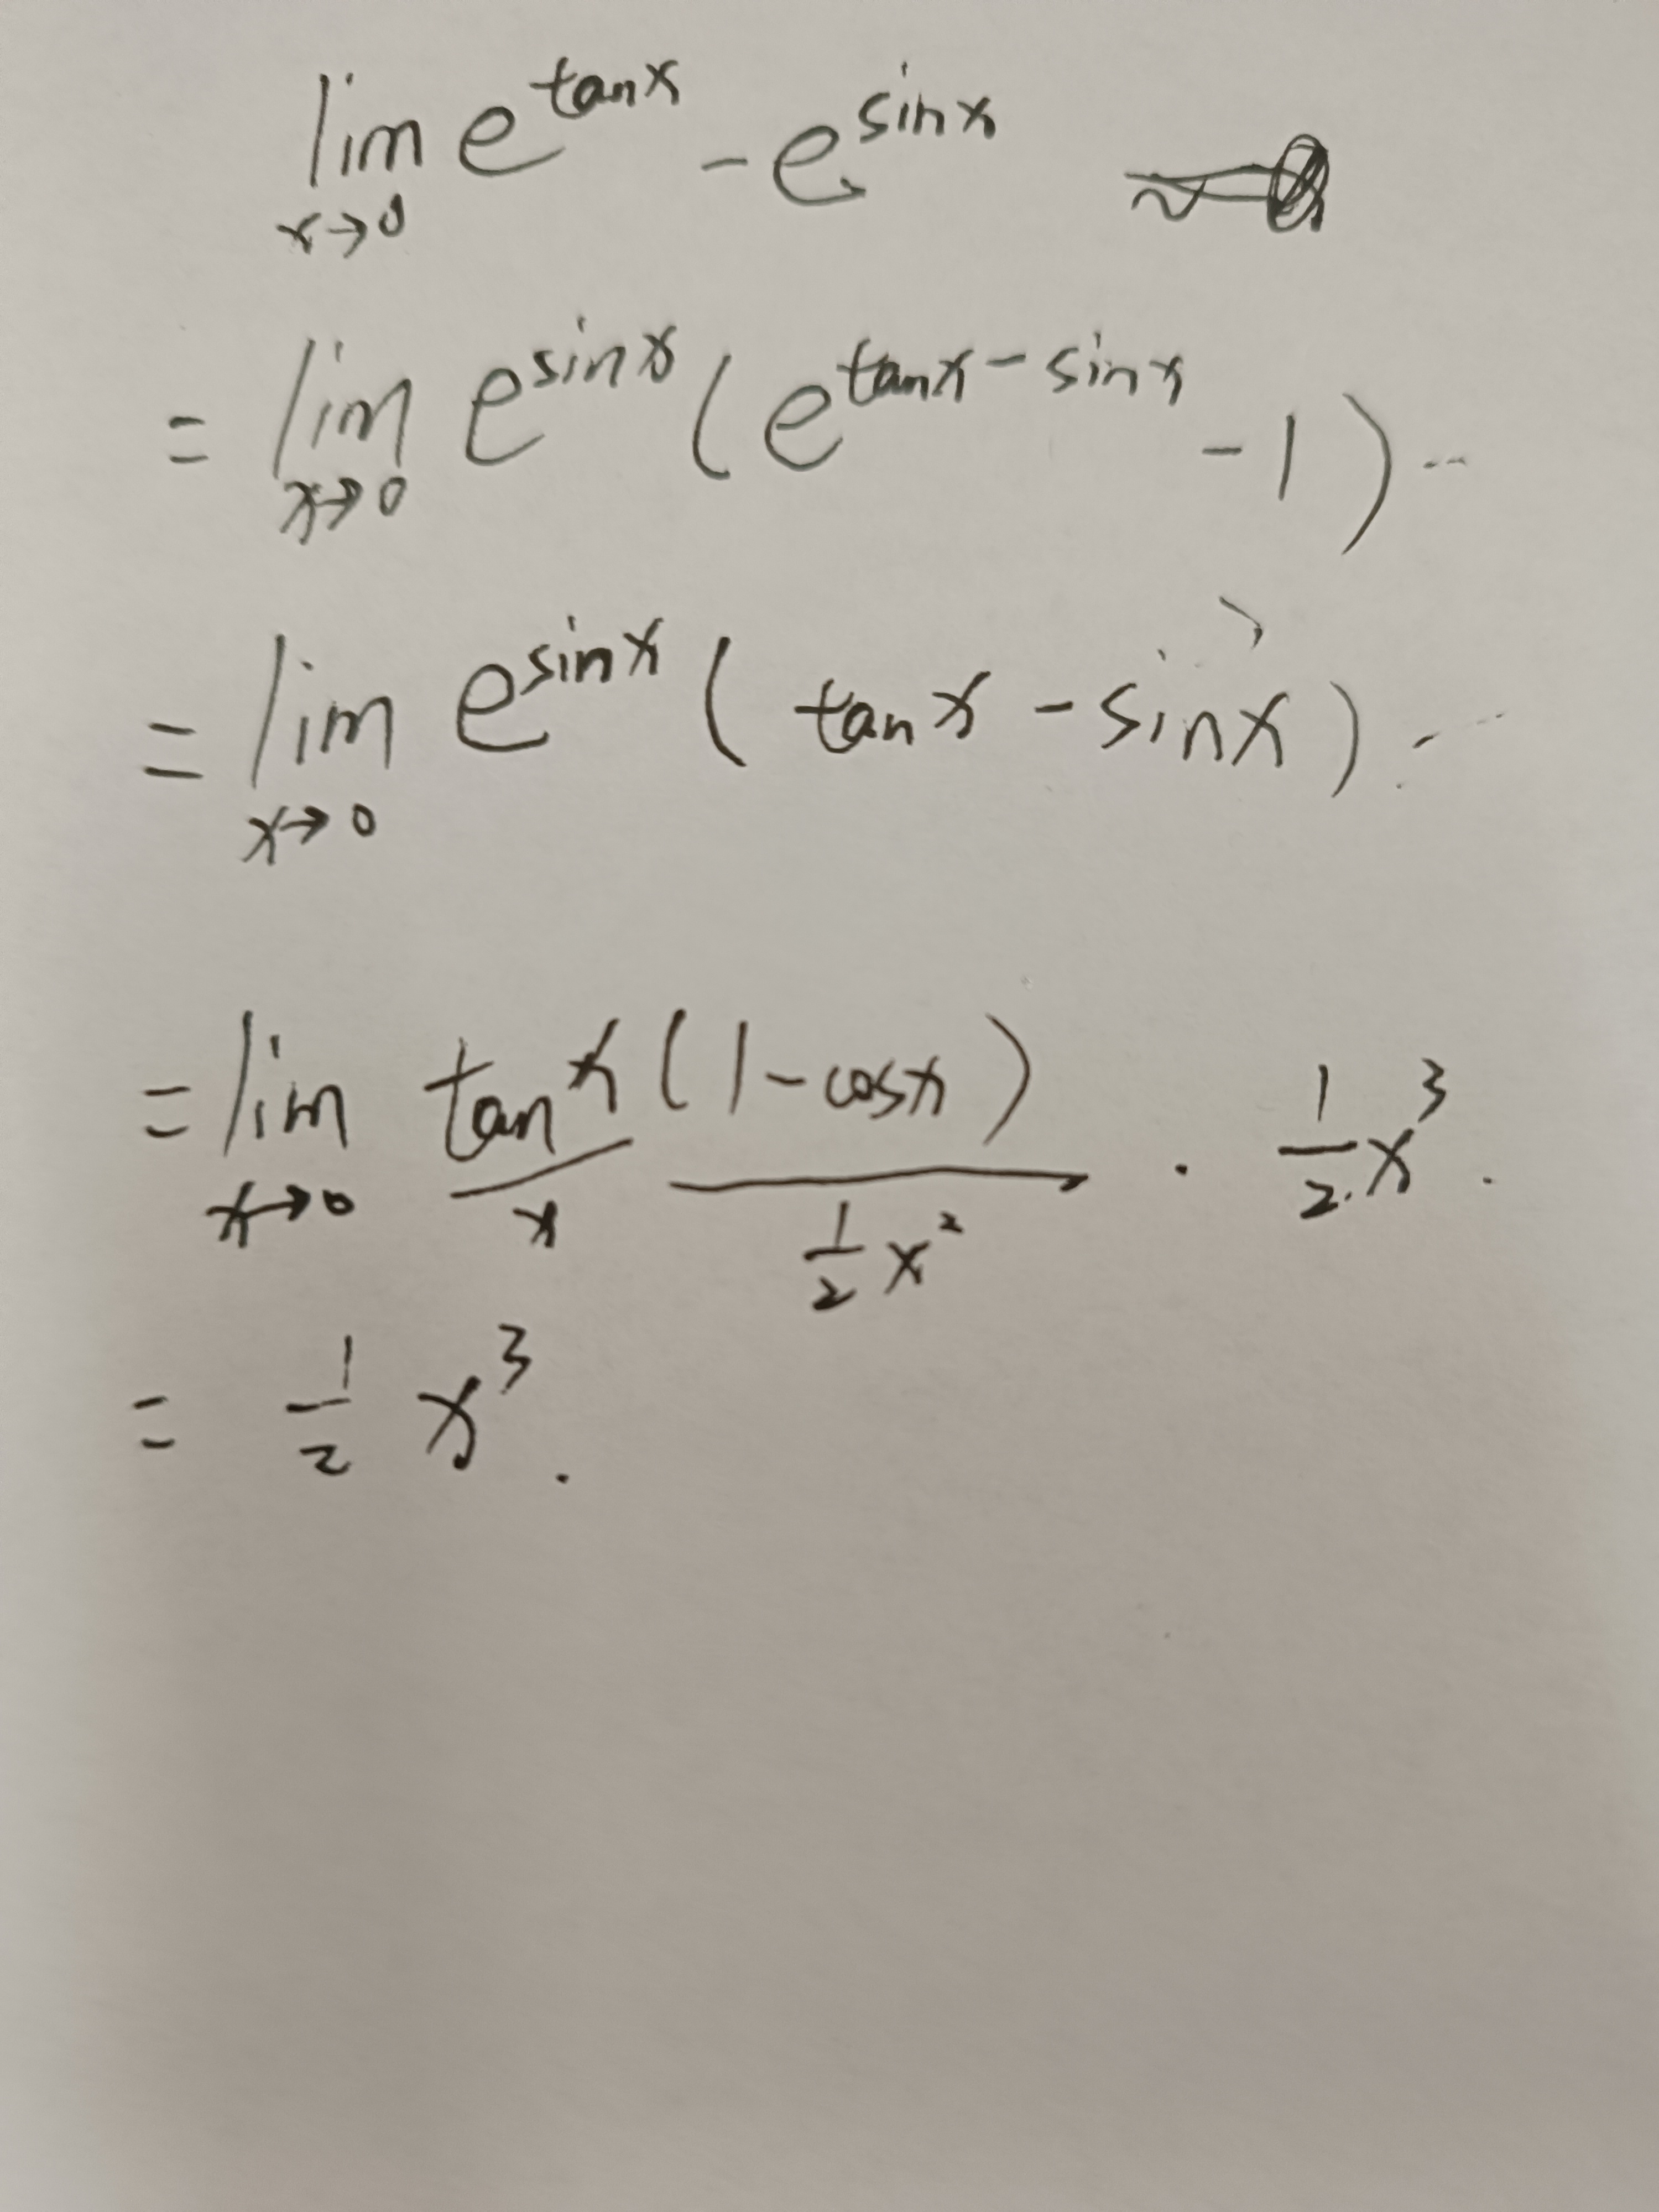 lim e^tanx - e^sinx
x→0
= lim e^sinx (e^tanx-sinx -1) ...
x→0
= lim e^sinx (tanx - sinx) ...
x→0
= lim tanx/x (1-cosx)/(1/2 x²) · 1/2 x³.
x→0
= 1/2 x³.